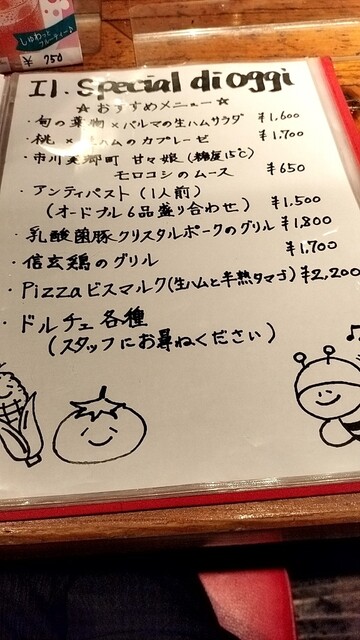 しゅわっと
フルーティー♪
¥ 750
Il. Special di oggi
☆おすすめメニュー☆
・旬の葉物×パルマの生ハムサラダ ¥1,600
・桃 × 生ハムのカプレーゼ ¥1,700
・市川美郷町 甘々娘(糖度15℃)
モロコシのムース ¥650
・アンティパスト(1人前)
(オードブル6品盛り合わせ) ¥1,500
・乳酸菌豚クリスタルポークのグリル ¥1,800
・信玄鶏のグリル ¥1,700
・Pizza ビスマルク(生ハムと半熟タマゴ) ¥2,200
・ドルチェ各種
(スタッフにお尋ねください)